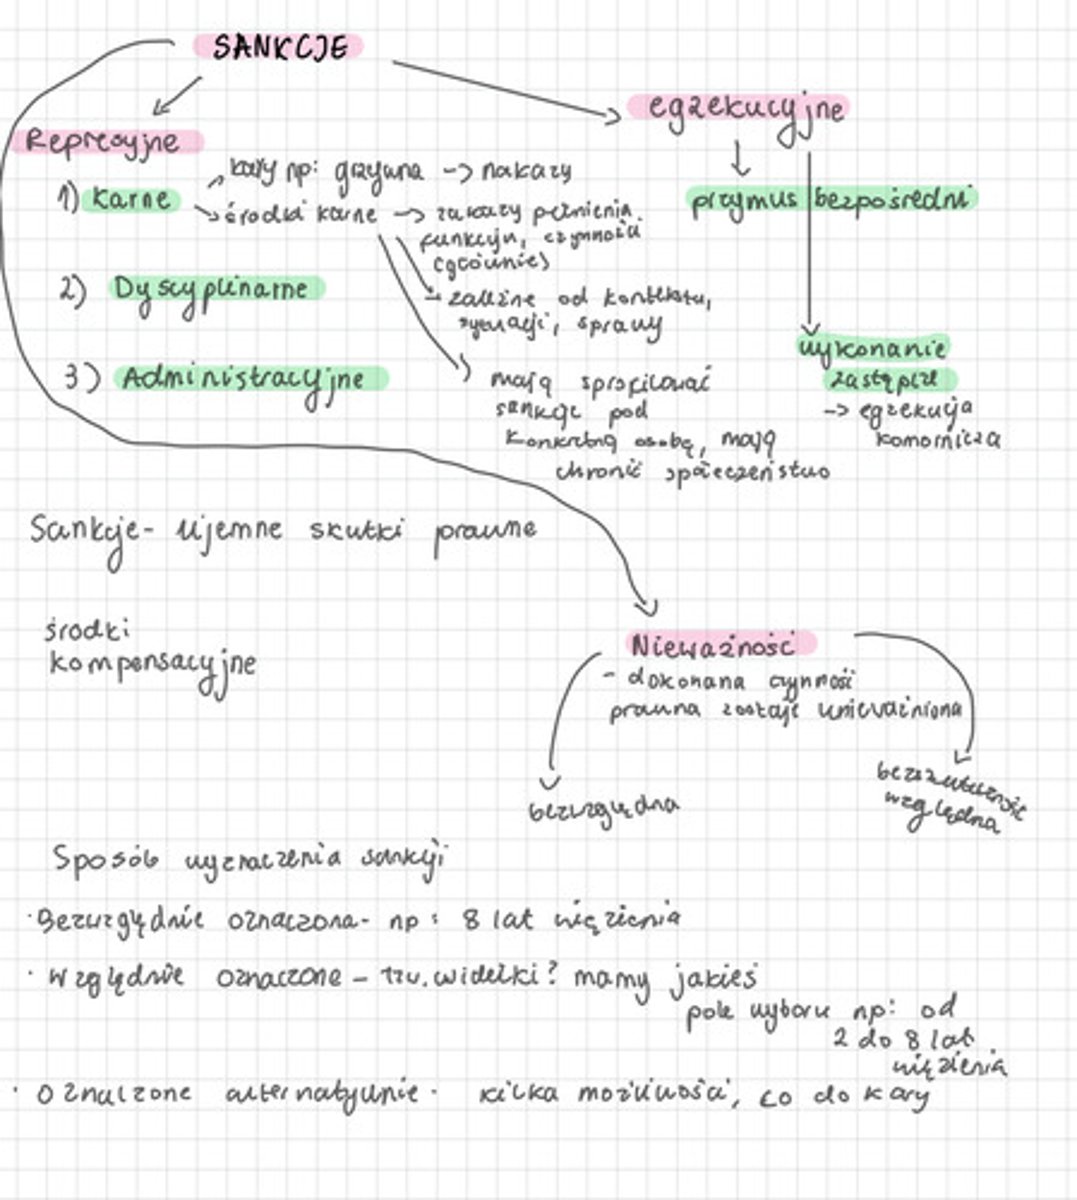 SANKCJE
egzekucyjne
Represyjne
kary np: grzywna -> nakazy
1) Karne
środki karne -> zakazy pełnienia
funkcyjn, czynności
(głównie)
przymus bezpośredni
2) Dyscyplinarne
zależne od kontekstu,
sytuacji, sprawy
wykonanie
zastępcze
-> egzekucja
komornicza
3) Administracyjne
mają sprofilować
sankcje pod
konkretną osobę, mają
chronić społeczeństwo
Sankcje- ujemne skutki prawne
środki
kompensacyjne
Nieważność
- dokonana czynność
prawna zostaje unieważniona
bezwzględna
bezskuteczność
względna
Sposób wyznaczenia sankcji
· Bezwzględnie oznaczona- np: 8 lat więzienia
· Względnie oznaczone - tzw. widełki? mamy jakieś
pole wyboru np: od
2 do 8 lat
więzienia
· Oznaczone alternatywnie · kilka możliwości, co do kary